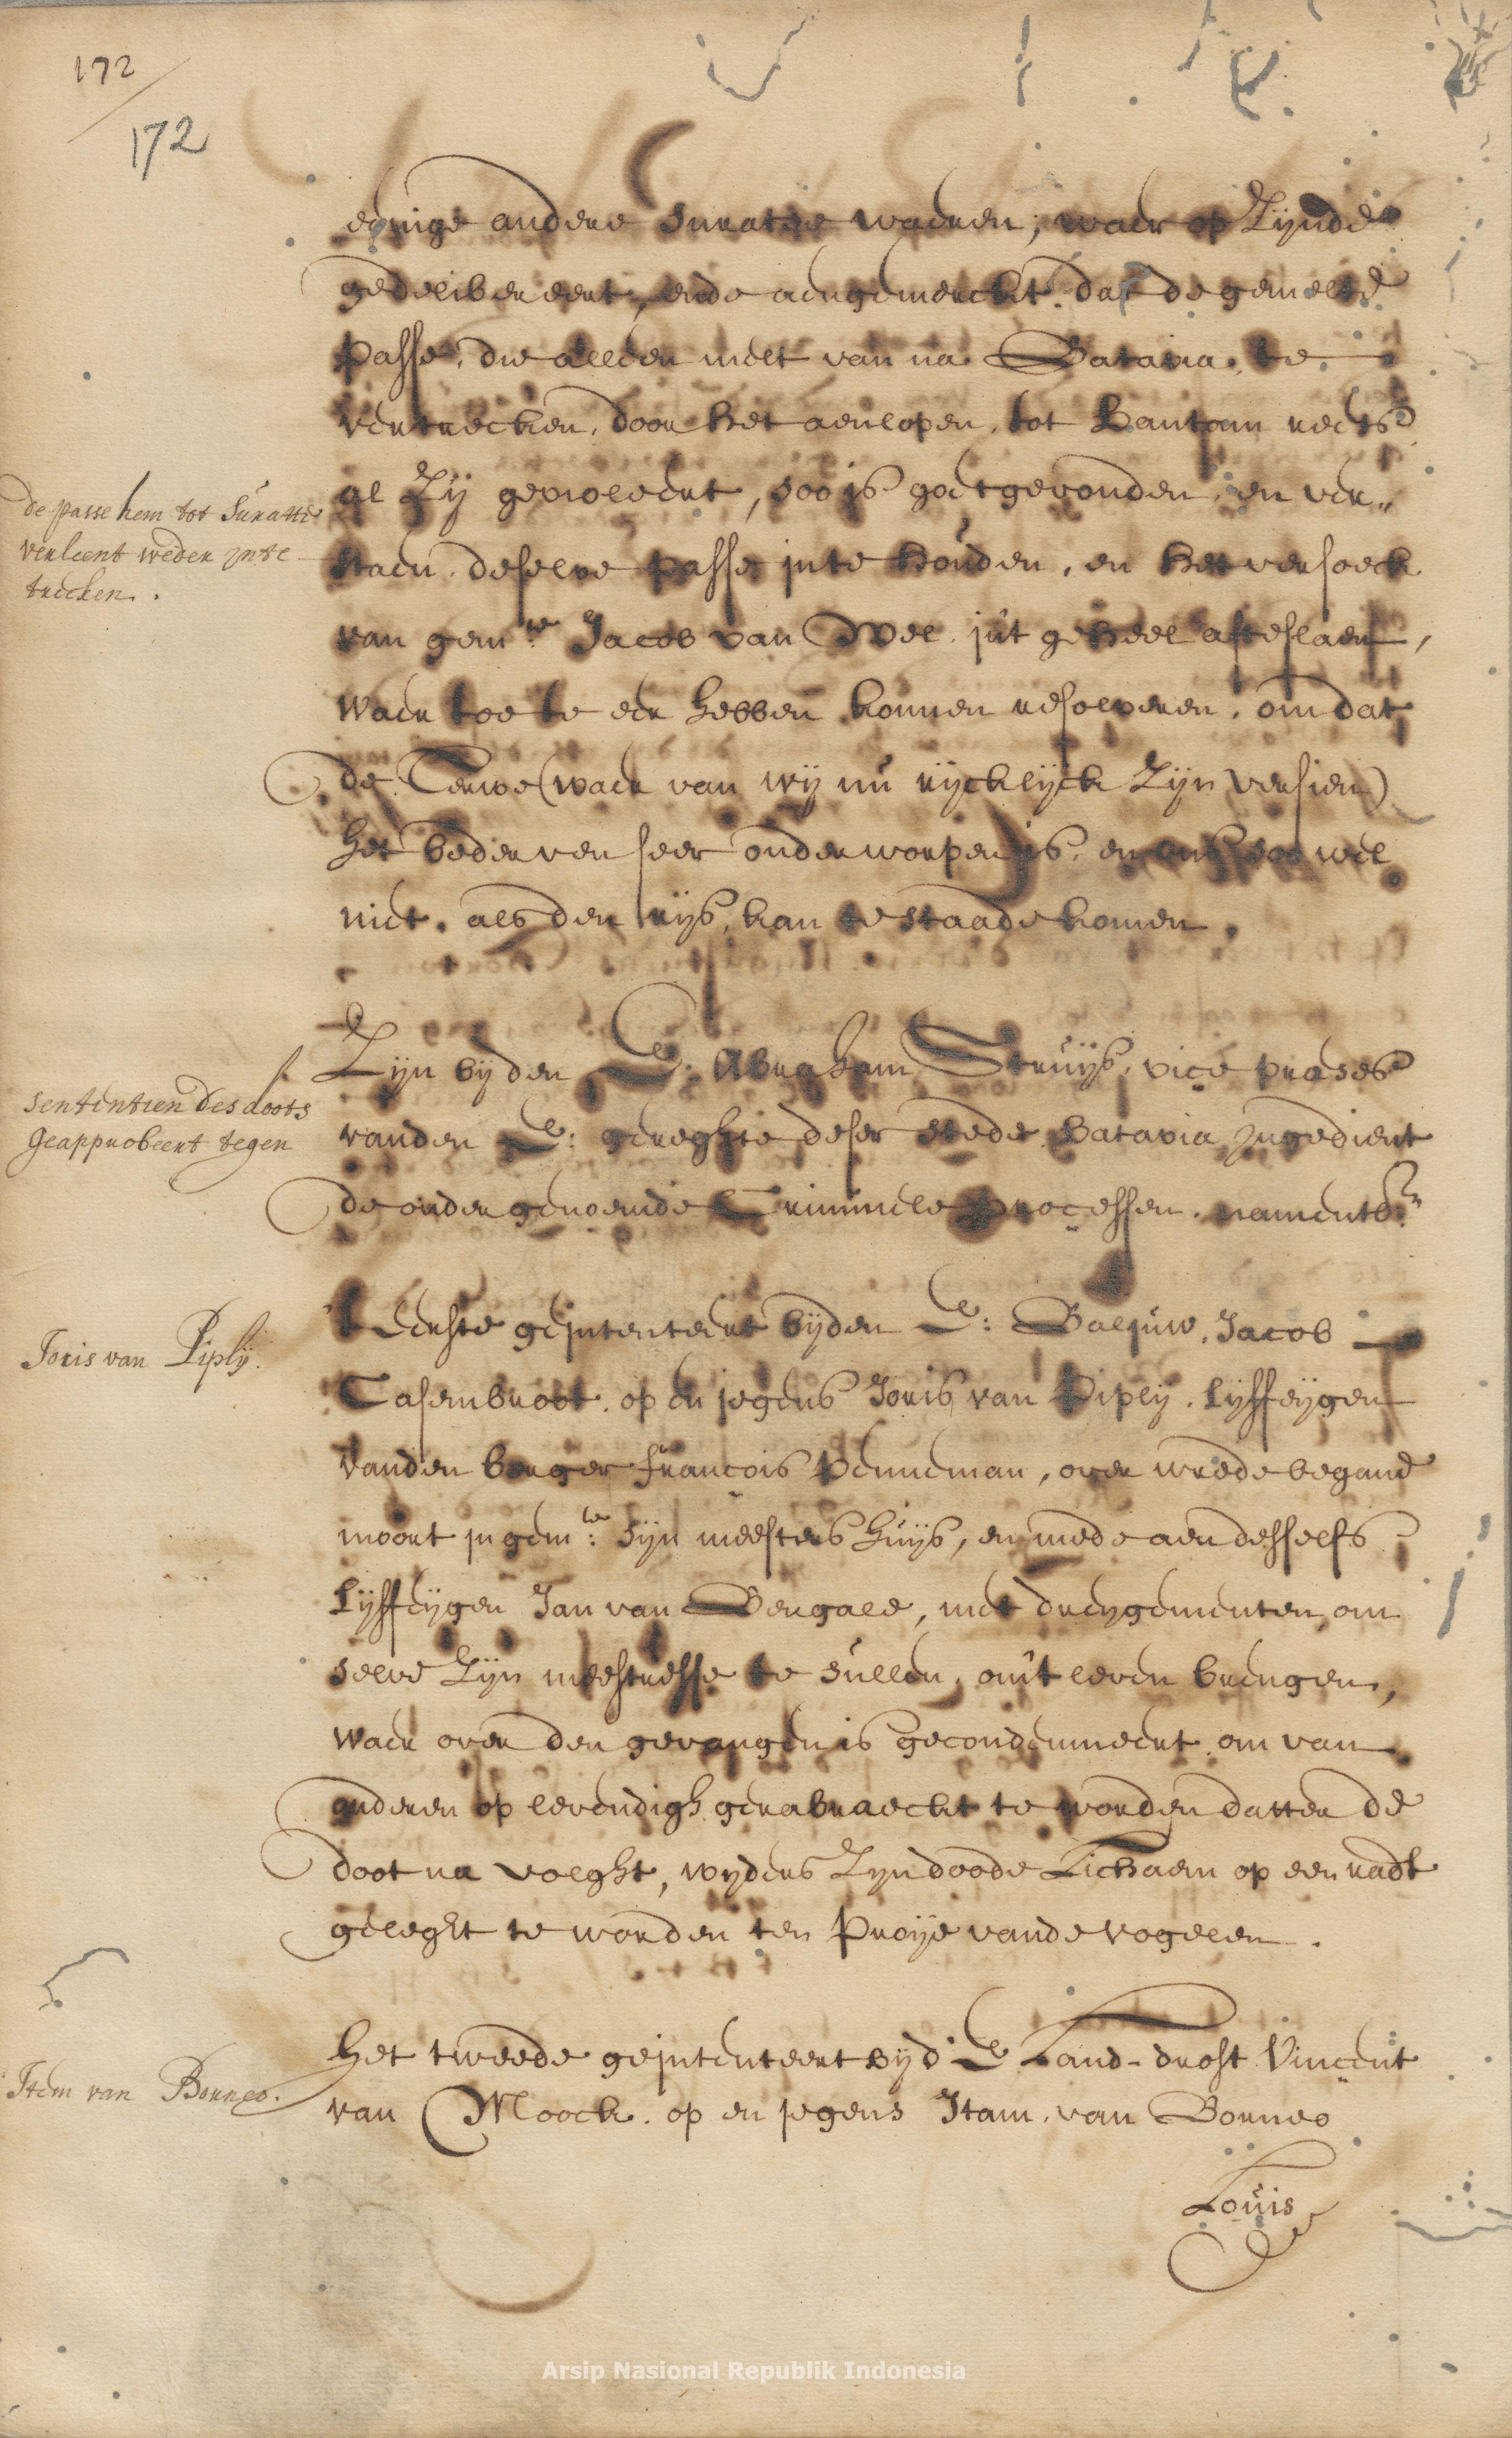 172
172
eenige andere Suratse waeren; waer op Zijnde
gedelibereert, ende aengemerckt dat de gemelte
Passe, die alleen melt van na Batavia te
vertrecken, door het aenlopen, tot Bantam reets
al Zij gevioleert, soo is goetgevonden, en ver„
staen deselve passe in te houden, en het versoeck
van gemte. Jacob van Wel int geheel afteslaen,
waer toe te eer hebben konnen resolveren, omdat
de Terwe (waer van wij nu rijcklijck Zijn versien)
het bederven seer onderworpen is, en ons soo wel
niet, als den rijs, kan te staade komen.
de passe hem tot Suratte
verleent weder in te
trecken.
Zijn bij den E: Abraham Struijs, vice preses
vanden E: gereghte deser stede Batavia ingedient
de ondergenoemde Criminele processen, namentl:
Sententien des doots
Geapprobeert tegen
't Eerste geintenteert bijden E: Baljuw, Jacob
Casembroot, op en jegens Joris van Piplij, Lijffeijgen
vanden borger francois Penneman, over wrede begane
moort in gemte: sijn meesters huijs, en mede aen desselfs
Lijffeijgen Jan van Bengale, met dreijgementen, om
selve Zijn meestresse te sullen, om't leven brengen,
waer over den gevangen is gecondemneert om van
onderen op levendigh gerabraeckt te worden datter de
doot na volght, wijders Zijn doode Lichaem op een radt
geleght te worden ten Proije vande vogelen.
Joris van Piplij.
Het tweede geintenteert bijd' E Land-drost Vincent
van Moock, op en jegens Itam, van Borneo
Item van Borneo.
Louis
Arsip Nasional Republik Indonesia